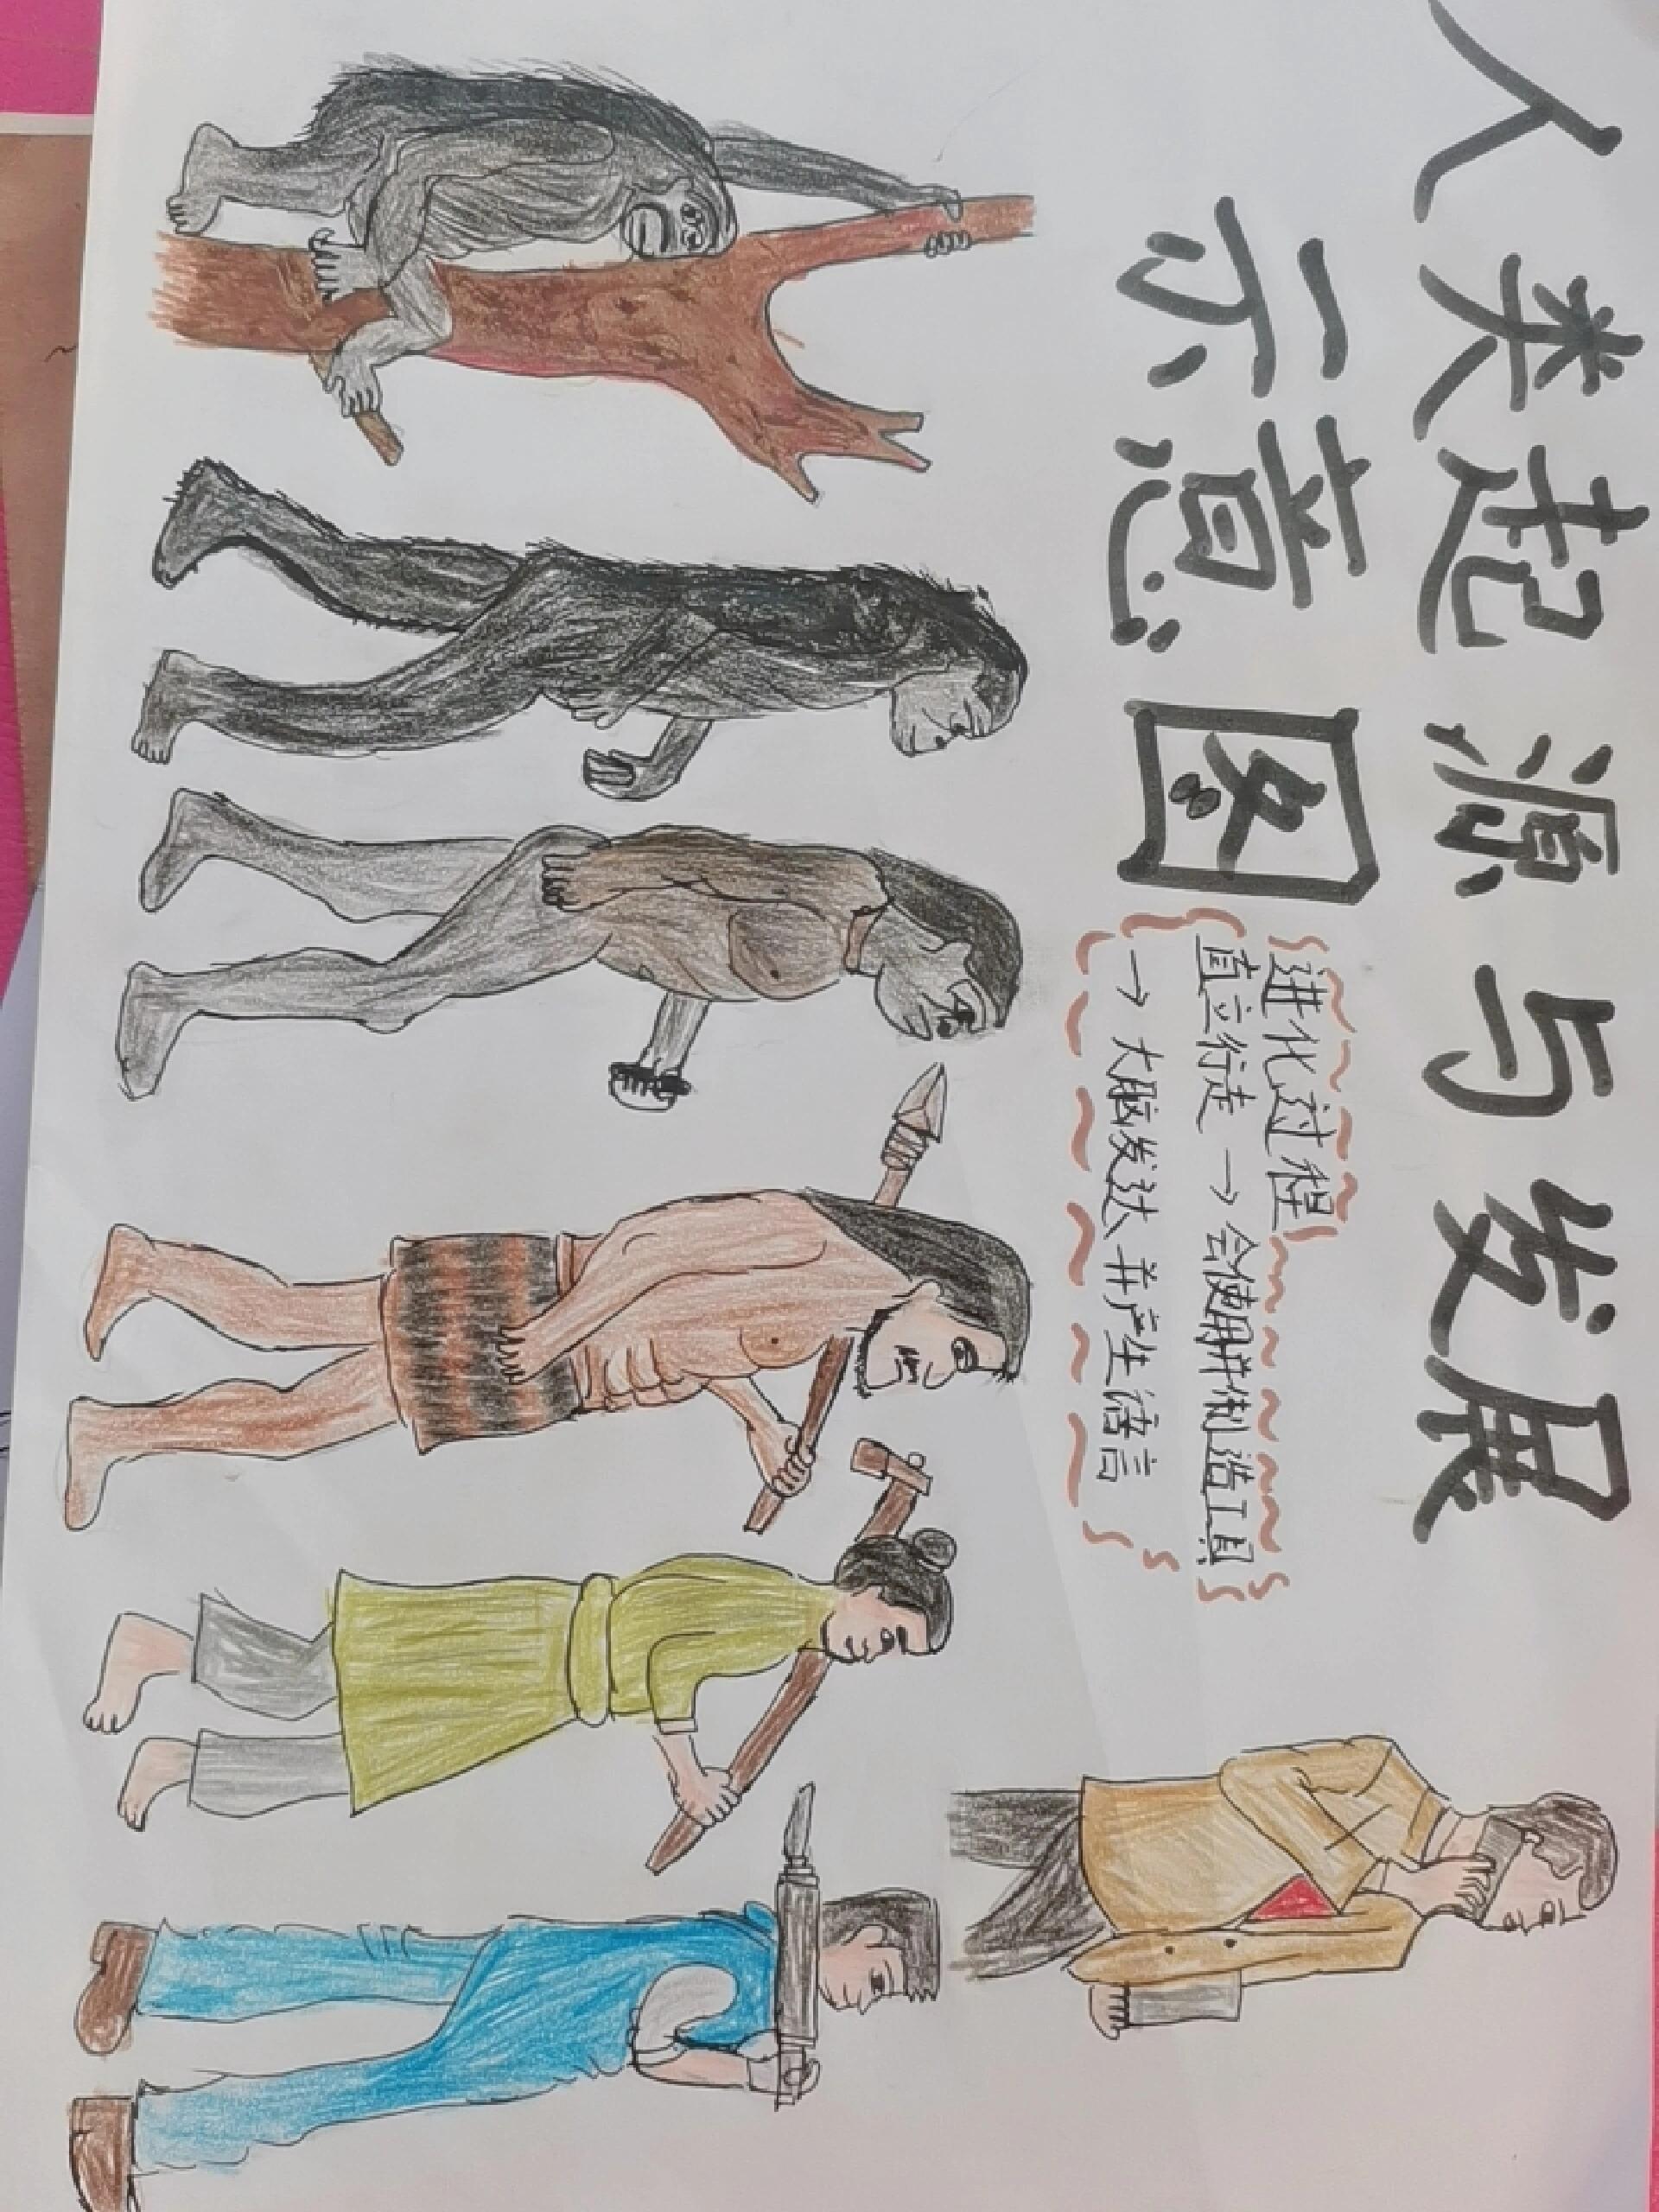 人类起源与发展
示意图
进化过程
直立行走→会使用并制造工具
→大脑发达并产生语言